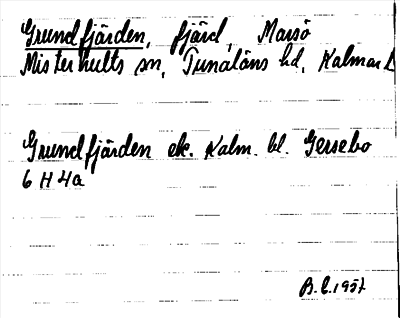 Grundfjärden, fjärd, Marsö
Misterhults sn, Tunaläns hd, Kalmar L
Grundfjärden ek. Kalm. bl. Gersebo
6 H 4a
B.E. 1957